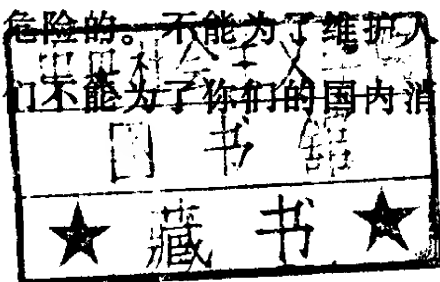 危险的。不能为了维护人
们不能为了你们的国内消
图书馆
★ 藏书 ★